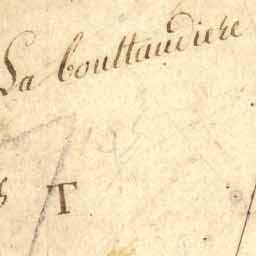 La bouttaudiere
T